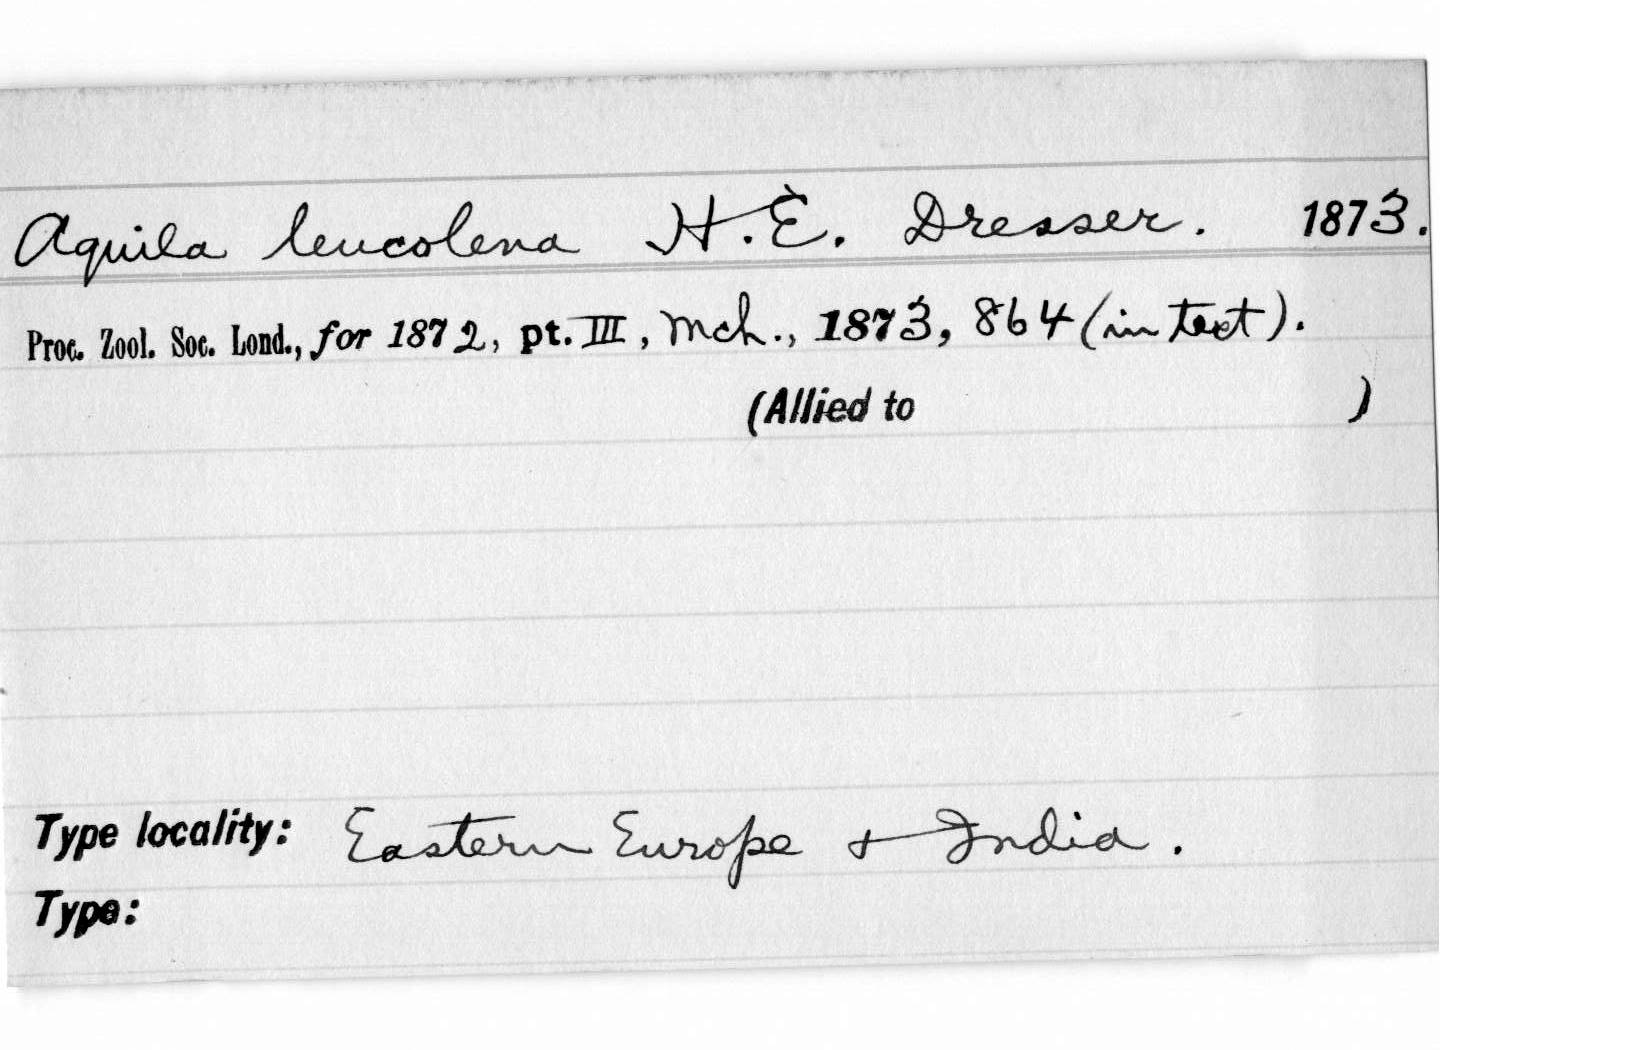 Aquila leucolena H. E. Dresser. 1873.
Proc. Zool. Soc. Lond., for 1872, pt. III, Mch., 1873, 864 (in text).
(Allied to )
Type locality: Eastern Europe + India.
Type: